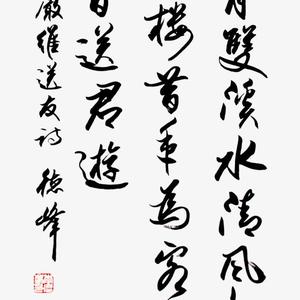 月雙溪水清風
樓昔年為客
日送君遊
嚴維送友詩 德峰